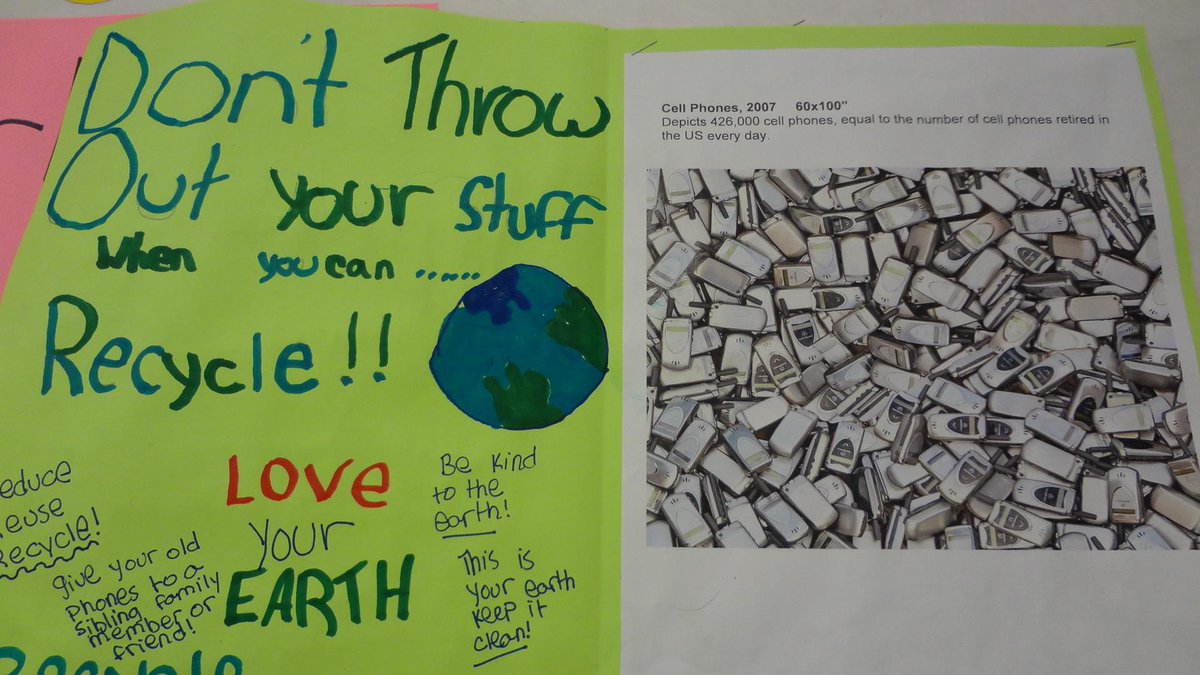 Don't Throw
Out your Stuff
When you can ......
Recycle!!
educe
euse
Recycle!
give your old
Phones to a
sibling family
member or
friend!
LOVE
your
EARTH
Be kind
to the
earth!
This is
your earth
keep it
clean!
Recycle
Cell Phones, 2007 60x100"
Depicts 426,000 cell phones, equal to the number of cell phones retired in
the US every day.